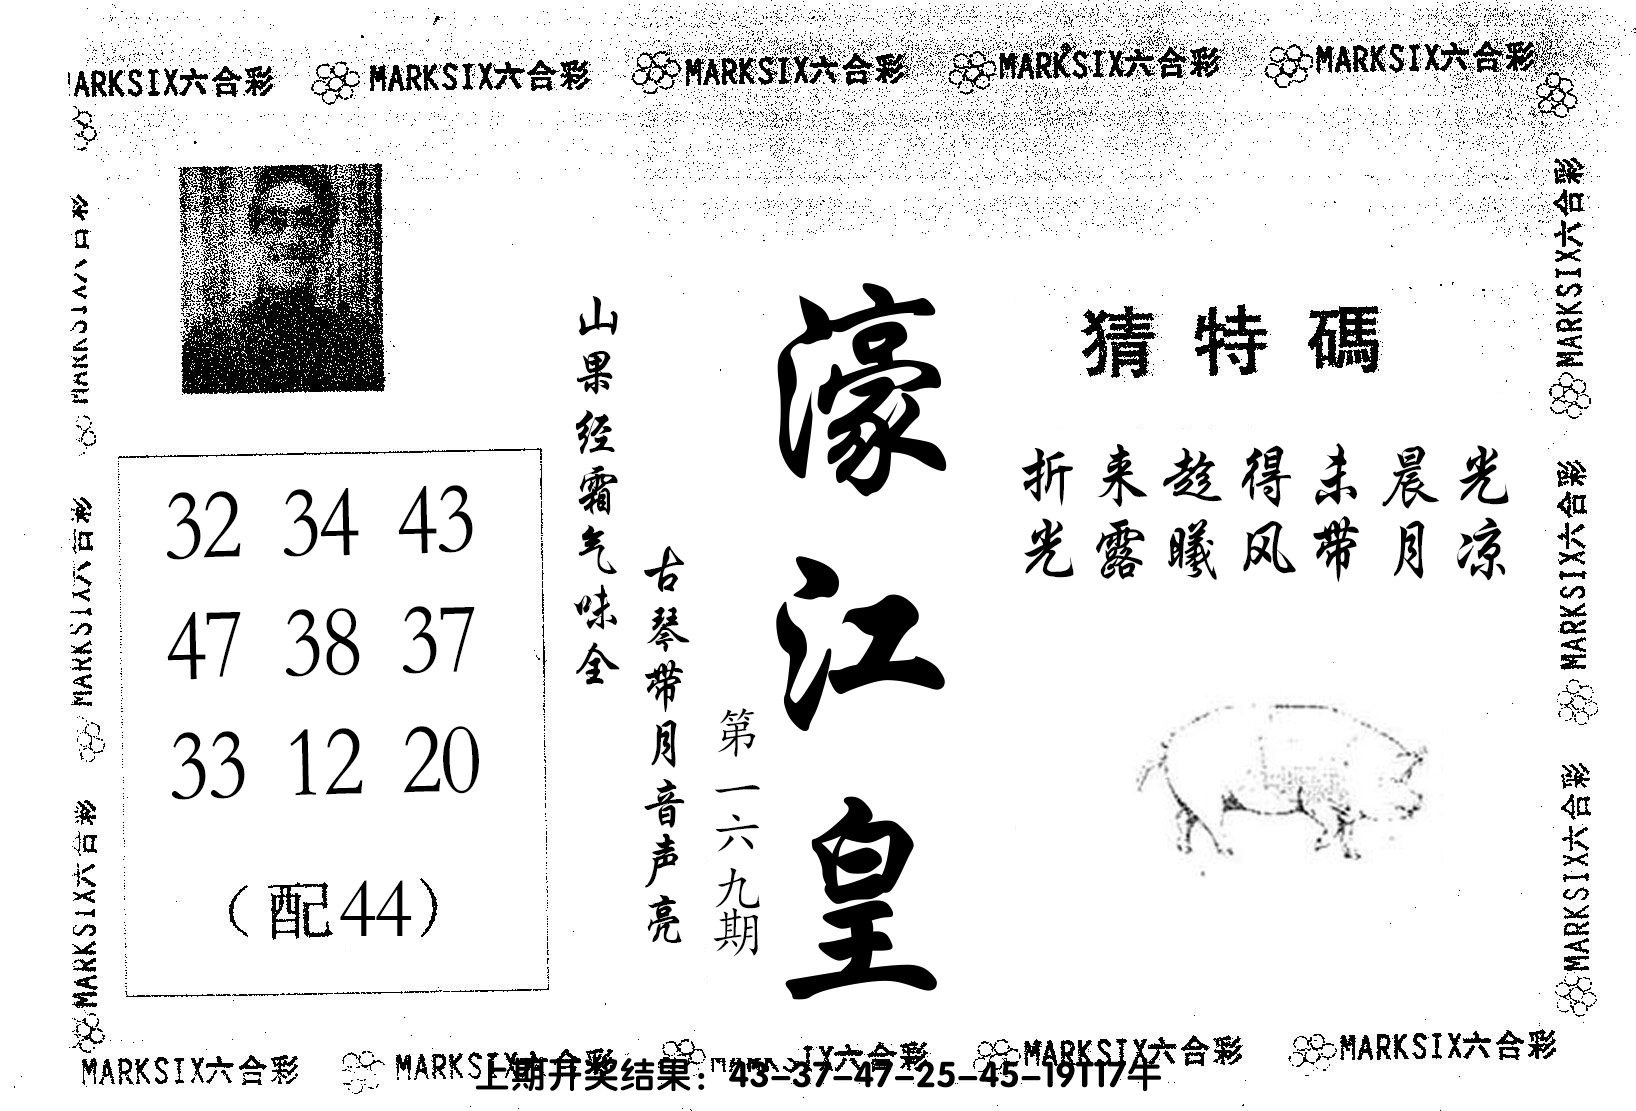 MARKSIX六合彩 MARKSIX六合彩 MARKSIX六合彩 MARKSIX六合彩
猜特碼
折来趁得未晨光
光露曦风带月凉
濠江皇
第一六九期
古琴带月音声亮
山果经霜气味全
32 34 43
47 38 37
33 12 20
（配44）
MARKSIX六合彩
MARKSIX六合彩
MARKSIX六合彩
MARKSIX六合彩
MARKSIX六合彩
MARKSIX六合彩 MARKSIX六合彩 MARKSIX六合彩 MARKSIX六合彩
上期开奖结果：43-37-47-25-45-19T17牛